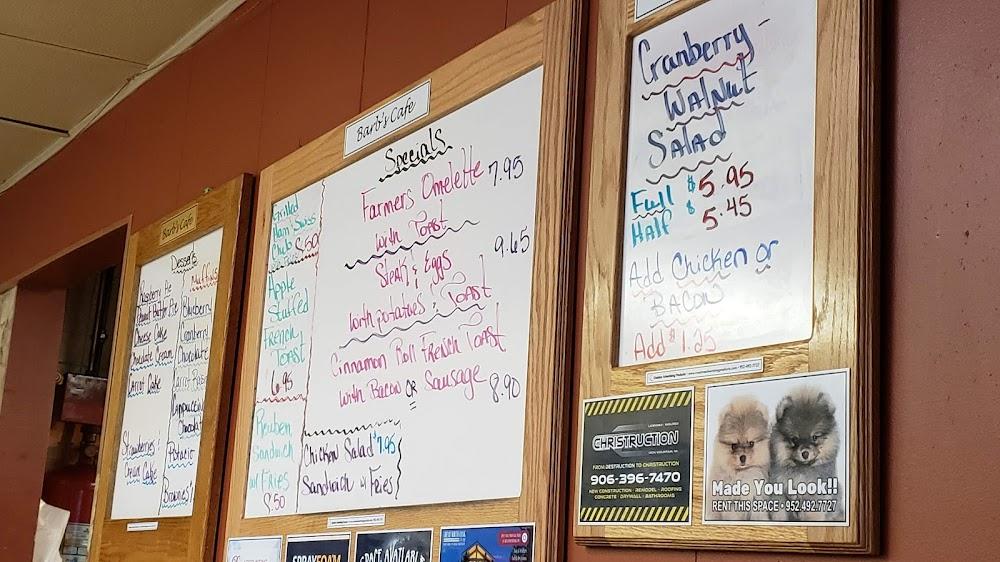 Barb's Cafe
Desserts
Raspberry Pie
Peanut Butter Pie
Cheese Cake
Chocolate Cream
Carrot Cake
Strawberries &
Cream Cake
Muffins
Blueberry
Cranberry
Chocolate
Carrot Raisin
Cappuccino
Chocolate
Potato
Brownies
Barb's Cafe
Specials
Grilled
Ham & Swiss
Club 8.50
Apple
Stuffed
French
Toast
6.95
Reuben
Sandwich
w/ Fries
8.50
Farmers Omelette 7.95
with Toast
Steak & Eggs 9.65
with potatoes & Toast
Cinnamon Roll French Toast
with Bacon OR Sausage 8.90
Chicken Salad $7.95
Sandwich w Fries
SPRAY FOAM
SPACE AVAILABLE
Cranberry -
Walnut
Salad
Full $5.95
Half $5.45
Add Chicken or
Bacon
Add $1.25
CHRISTRUCTION
FROM DESTRUCTION TO CHRISTRUCTION
906-396-7470
NEW CONSTRUCTION • REMODEL • ROOFING
CONCRETE • DRYWALL • BATHROOMS
Made You Look!!
RENT THIS SPACE • 952.492.7727